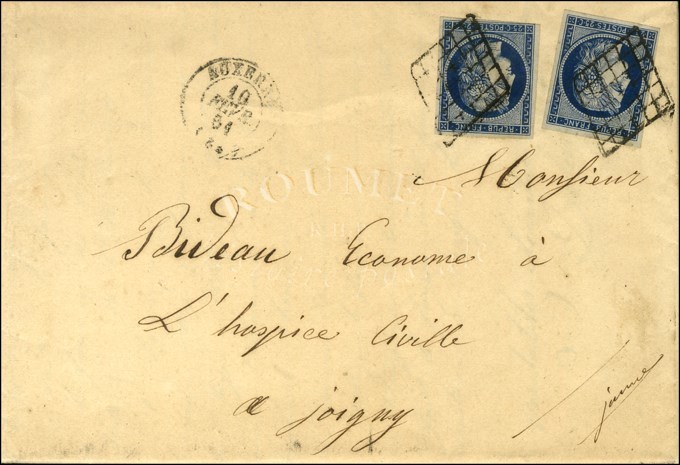 25 C POSTES 25 C
REPUB FRANC
25 C POSTES 25 C
REPUB FRANC
AUXERRE
10
FEVR.
51
ROUMET
Monsieur
Bideau Econome à
L'hospice Civille
a joigny